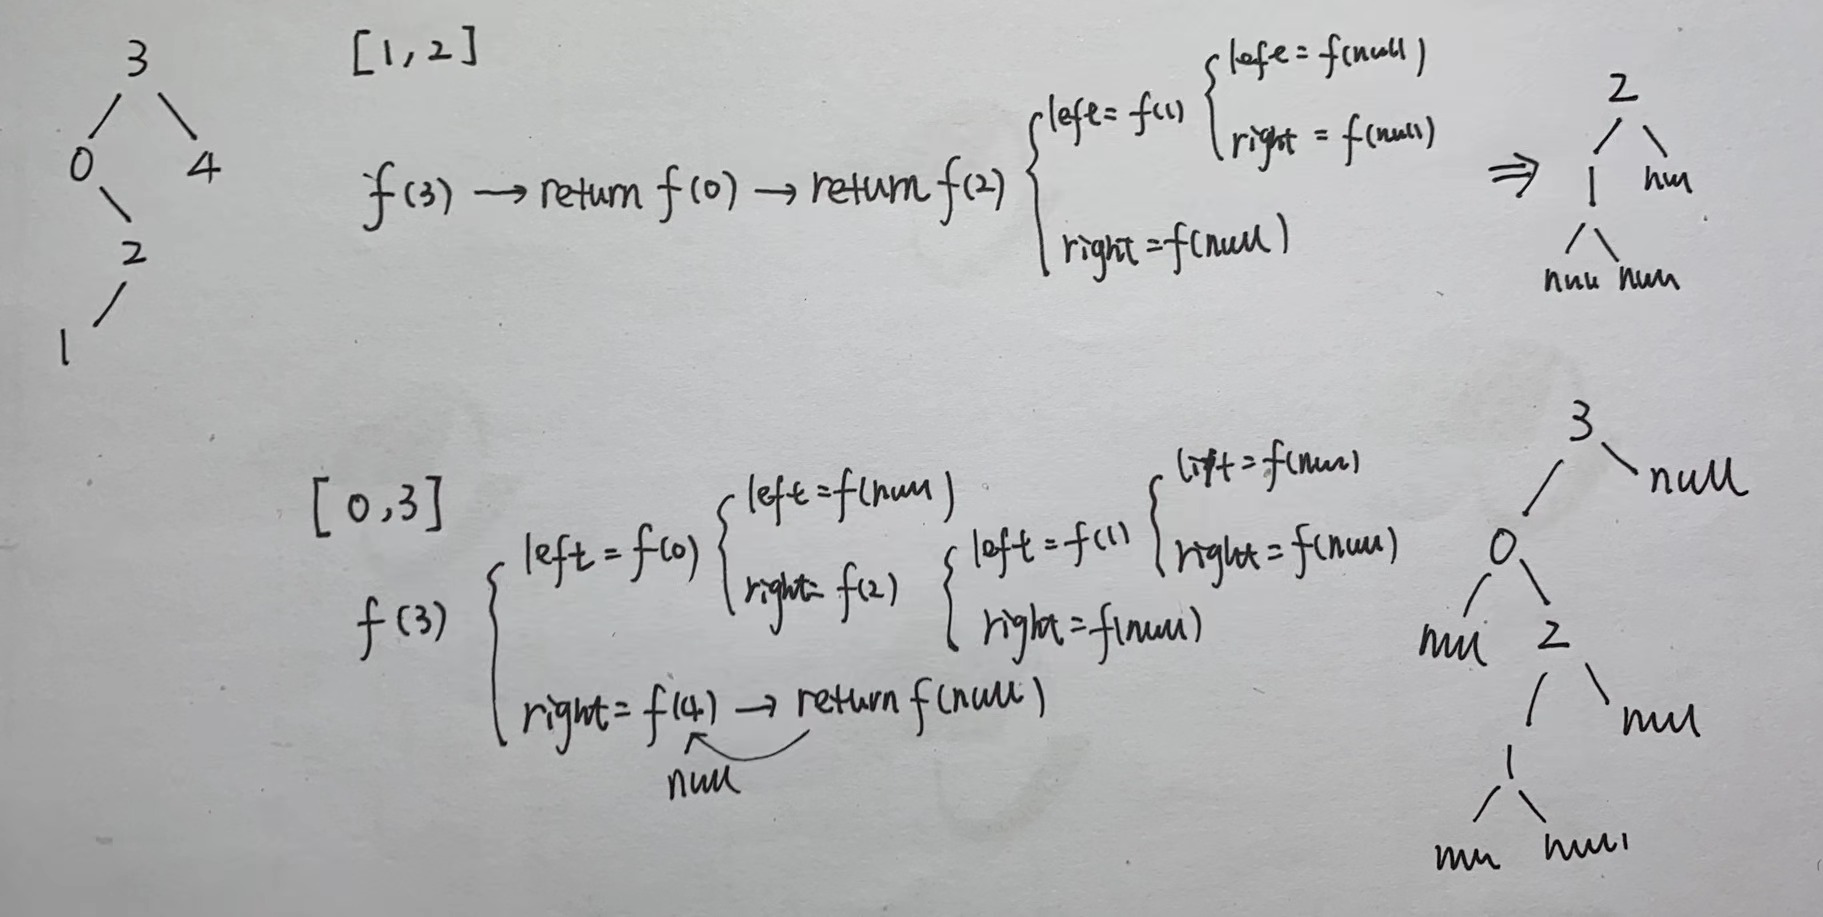 3
[1,2]
0 4
2
1
f(3) → return f(0) → return f(2)
left = f(1)
left = f(null)
right = f(null)
right = f(null)
⇒
2
1 null
null null
[0,3]
f(3)
left = f(0)
left = f(null)
right = f(2)
left = f(1)
left = f(null)
right = f(null)
right = f(null)
right = f(4) → return f(null)
null
3
null
0
null 2
null
1
null null